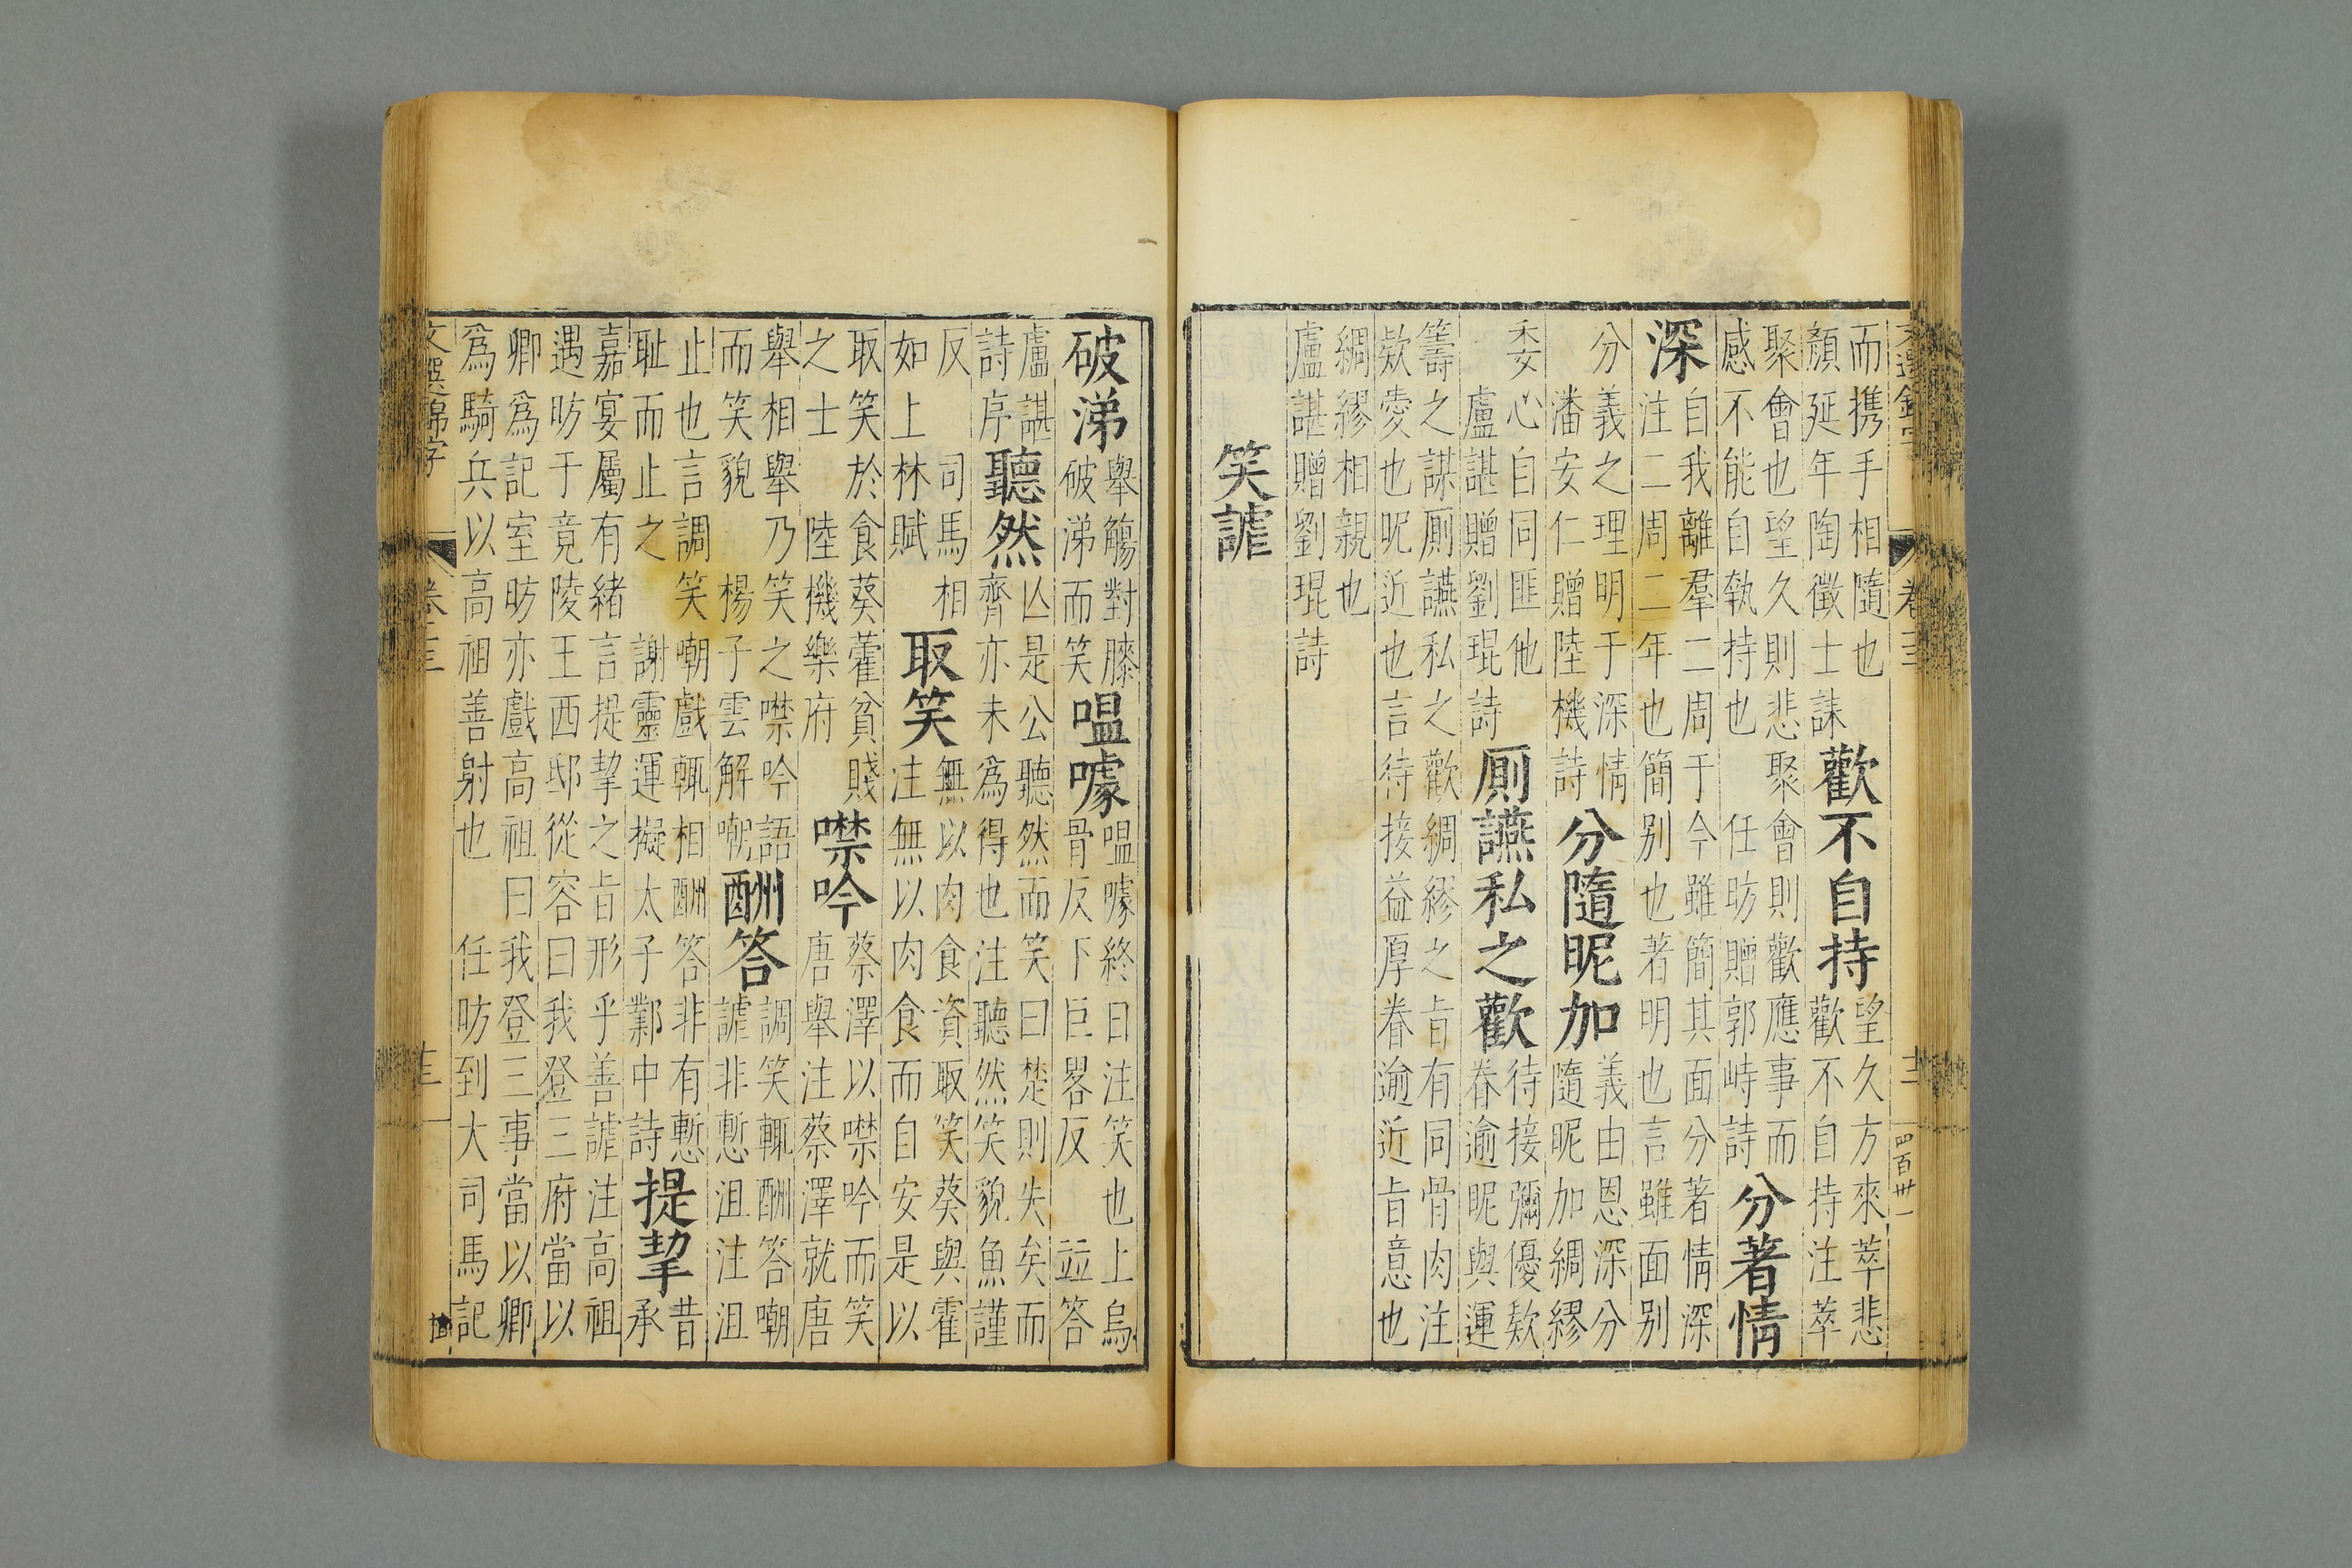 文選錦字 卷三 十二 四百卅一
而携手相隨也
顏延年陶徵士誄
歡不自持
望久方來萃悲
歡不自持注萃
聚會也望久則悲聚會則歡應事而
感不能自執持也 任昉贈郭峙詩
分著情
深
自我離羣二周于今雖簡其面分著情深
注二周二年也簡別也著明也言雖面別
分義之理明于深情
潘安仁贈陸機詩
分隨昵加
義由恩深分
隨昵加綢繆
委心自同匪他
盧諶贈劉琨詩
厠讌私之歡
待接彌優欵
眷逾昵與運
籌之謀厠讌私之歡綢繆之旨有同骨肉注
欵愛也昵近也言待接益厚眷逾近旨意也
綢繆相親也
盧諶贈劉琨詩
笑謔
破涕
舉觴對膝
破涕而笑
嗢噱
嗢噱終日注笑也上烏
骨反下巨畧反 並答
盧諶
詩序
聽然
亾是公聽然而笑曰楚則失矣而
齊亦未為得也注聽然笑貌魚謹
反 司馬相
如上林賦
取笑
無以肉食資取笑葵與霍
注無以肉食而自安是以
取笑於食葵藿貧賤
之士 陸機樂府
噤吟
蔡澤以噤吟而笑
唐舉注蔡澤就唐
舉相舉乃笑之噤吟語
而笑貌 楊子雲解嘲
酬答
調笑輒酬答嘲
謔非慙沮注沮
止也言調笑嘲戲輒相酬答非有慙
耻而止之 謝靈運擬太子鄴中詩
提挈
昔
承
嘉宴屬有緒言提挈之旨形乎善謔注高祖
遇昉于竟陵王西邸從容曰我登三府當以
卿為記室昉亦戲高祖曰我登三事當以卿
為騎兵以高祖善射也 任昉到大司馬記
文選錦字 卷三 十三